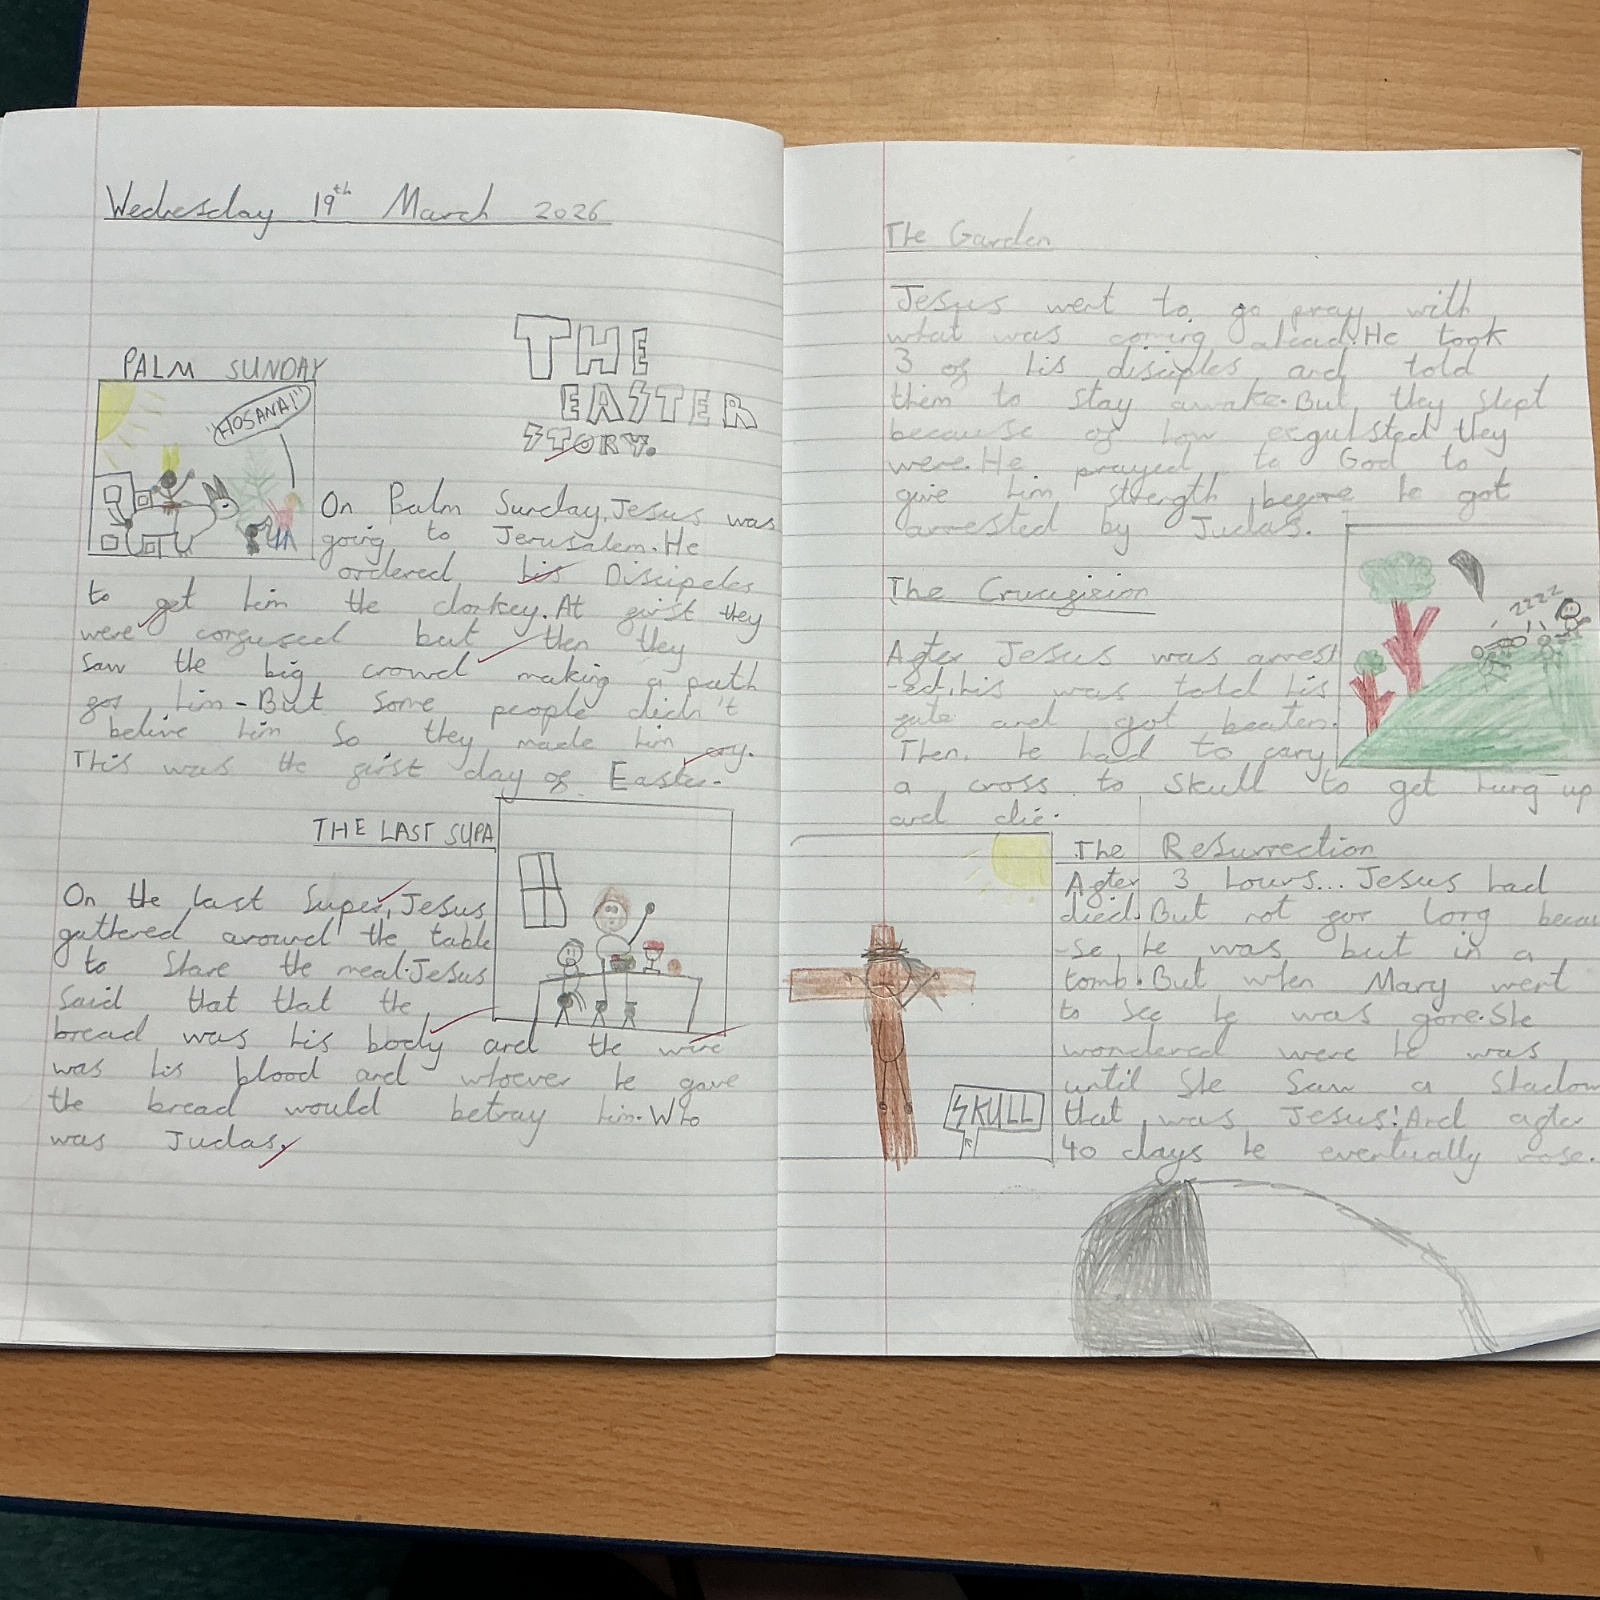 Wednesday 19th March 2026
THE
EASTER
STORY.
PALM SUNDAY
"HOSANA!"
On Palm Sunday, Jesus was
going to Jerusalem. He
ordered his Discipeles
to get him the donkey. At first they
were confused but then they
saw the big crowd making a path
for him - But some people didn't
belive him so they made him cry.
This was the first day of Easter.
THE LAST SUPA
On the last Super, Jesus
gathered around the table
to share the meal. Jesus
said that that the
bread was his body and the wine
was his blood and whoever he gave
the bread would betray him. Who
was Judas.
The Garden
Jesus went to go pray with
what was coming ahead. He took
3 of his disciples and told
them to stay awake. But, they slept
because of how exgulsted they
were. He prayed to God to
give him strength before he got
arrested by Judas.
zzzz
The Crucifixion
After Jesus was arrest
-ed, his was told his
fate and got beaten.
Then, he had to cary
a cross to Skull to get hung up
and die.
SKULL
The Resurrection
After 3 hours... Jesus had
died. But not for long becau
-se, he was but in a
tomb. But when Mary went
to see he was gone. She
wondered were he was
until she saw a shadow
that was Jesus! And after
40 days he eventually rose.